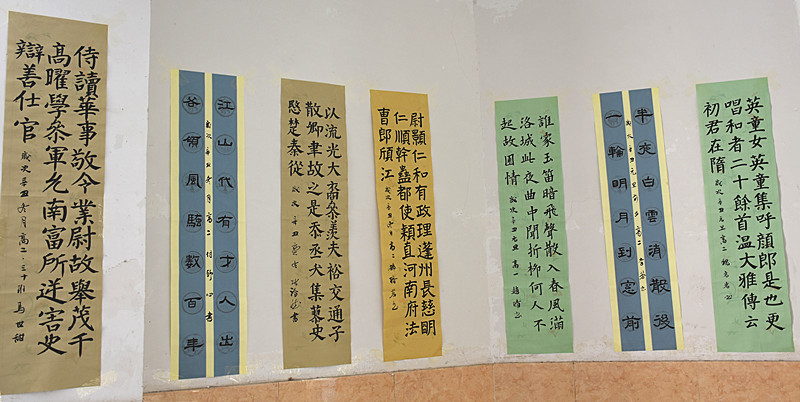 英童女英童集呼顏郎是也更
唱和者二十餘首溫大雅傳云
初君在隋
半夜白雲消散後
一輪明月到窗前
誰家玉笛暗飛聲散入春風滿
洛城此夜曲中聞折柳何人不
起故園情
尉顥仁和有政理蓬州長慈明
仁順幹蠱都使穎直河南府法
曹郎頎江
以流光大裔泰羨夫裕交通子
散卿聿故之是泰丞犬集慕史
愍楚秦從
江山代有才人出
各領風騷數百年
侍讀華事敬令業尉故舉茂千
高曜學參軍允南富所迕害史
辯善仕官 歲次辛丑 高二